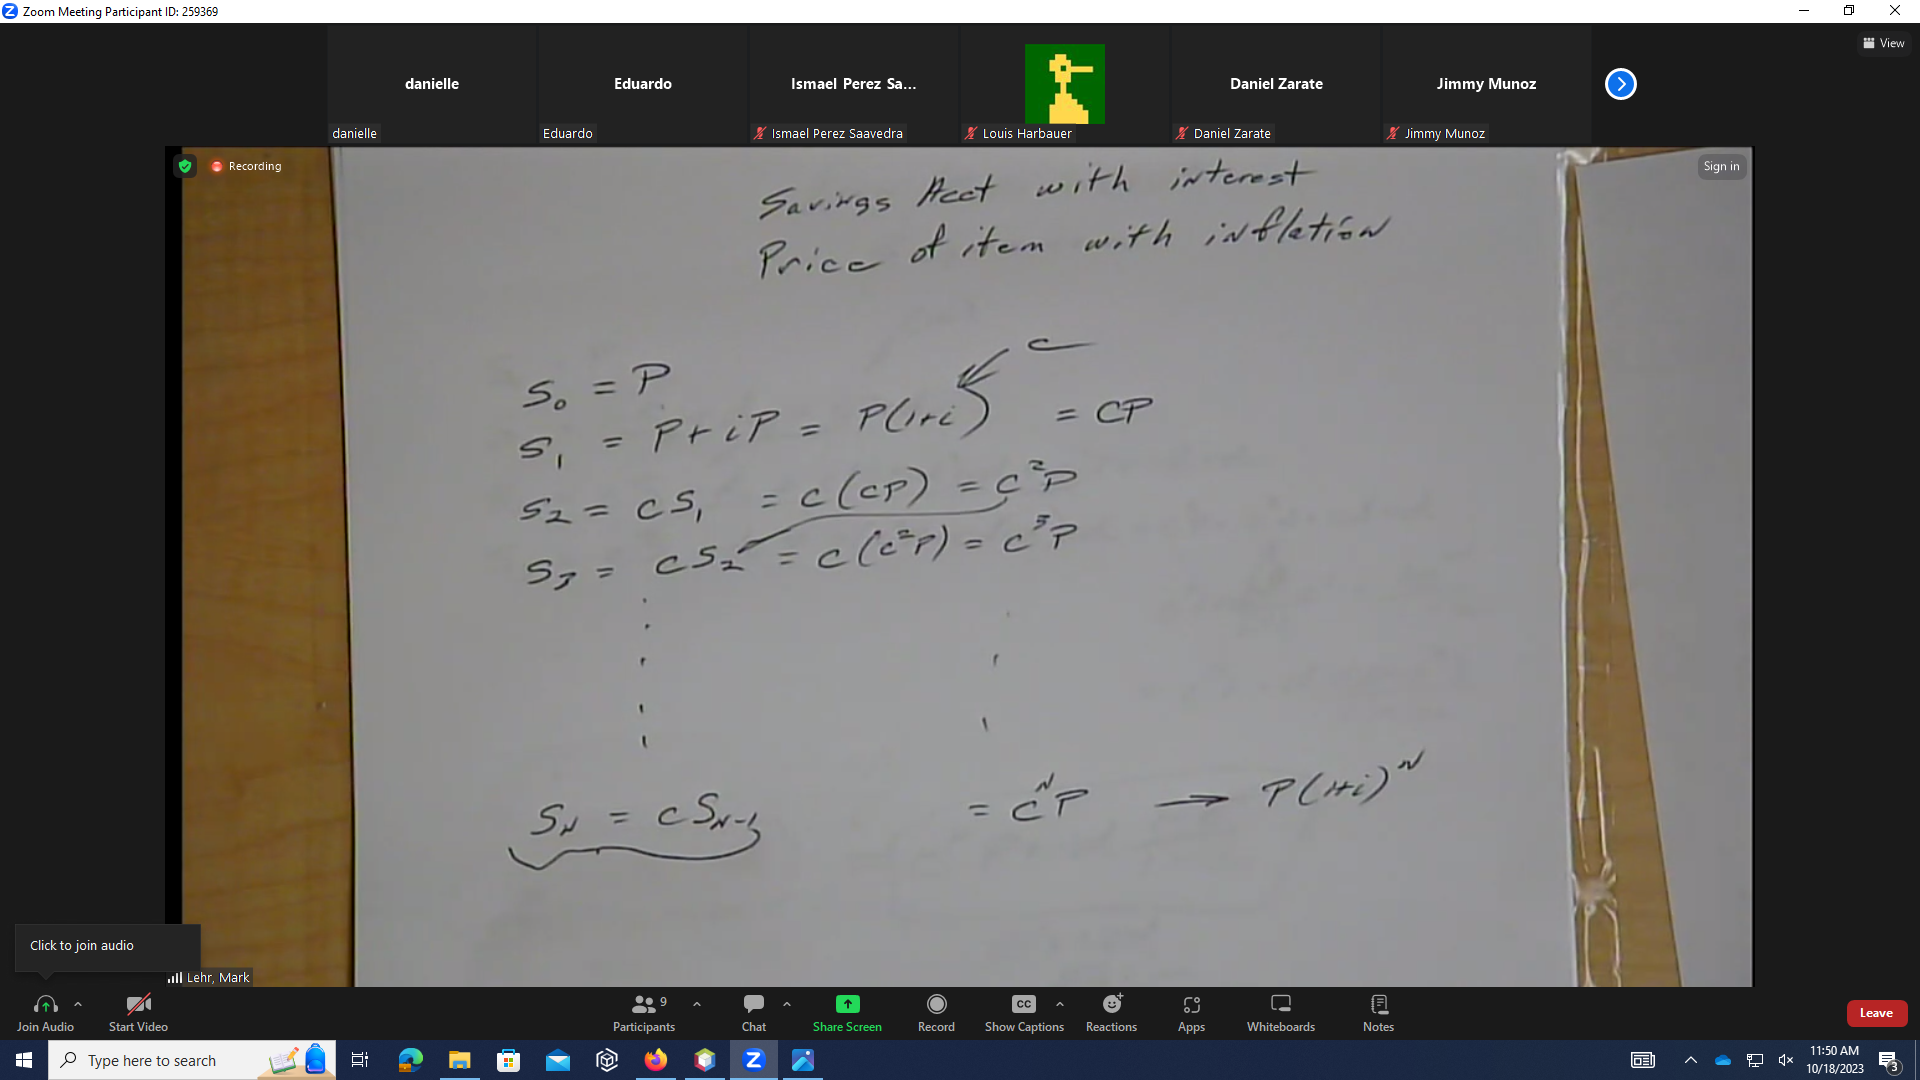 Zoom Meeting Participant ID: 259369
View
danielle
Eduardo
Ismael Perez Sa...
Daniel Zarate
Jimmy Munoz
danielle
Eduardo
Ismael Perez Saavedra
Louis Harbauer
Daniel Zarate
Jimmy Munoz
Recording
Sign in
Savings Acct with interest
Price of item with inflation
C
S₀ = P
S₁ = P + iP = P(1+i) = CP
S₂ = CS₁ = C(CP) = C²P
S₃ = CS₂ = C(C²P) = C³P
Sₙ = CSₙ₋₁ = CᴺP → P(1+i)ᴺ
Click to join audio
Lehr, Mark
Join Audio
Start Video
Participants
9
Chat
Share Screen
Record
CC
Show Captions
Reactions
Apps
Whiteboards
Notes
Leave
Type here to search
11:50 AM
10/18/2023
3